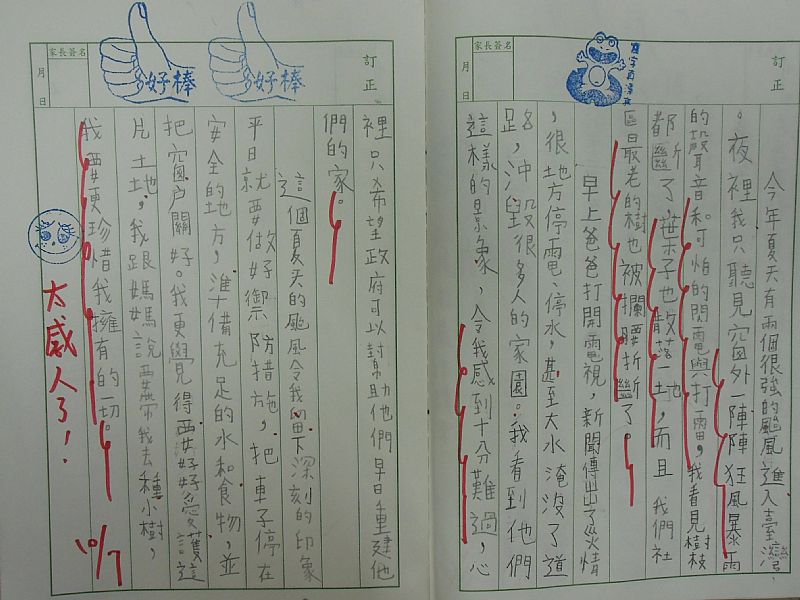 訂正
家長簽名
月 日
今年夏天有兩個很強的颱風進入臺灣
。夜裡我只聽見窗外一陣陣狂風暴雨
的聲音和可怕的閃電與打雷,我看見樹枝
都斷了,葉子也散落一地,而且我們社
區最老的樹也被攔腰折斷了。
早上爸爸打開電視,新聞傳出了災情
,很地方停電、停水,甚至大水淹沒了道
路,沖毀很多人的家園。我看到他們
這樣的景象,令我感到十分難過,心
訂正
家長簽名
月 日
好棒
好棒
裡只希望政府可以幫助他們早日重建他
們的家。
這個夏天的颱風令我留下深刻的印象
平日就要做好御防措施,把車子停在
安全的地方,準備充足的水和食物,並
把窗戶關好。我更覺得要好好愛護這
片土地,我跟媽媽說要帶我去種小樹,
我要更珍惜我擁有的一切。
太感人了!
10/7